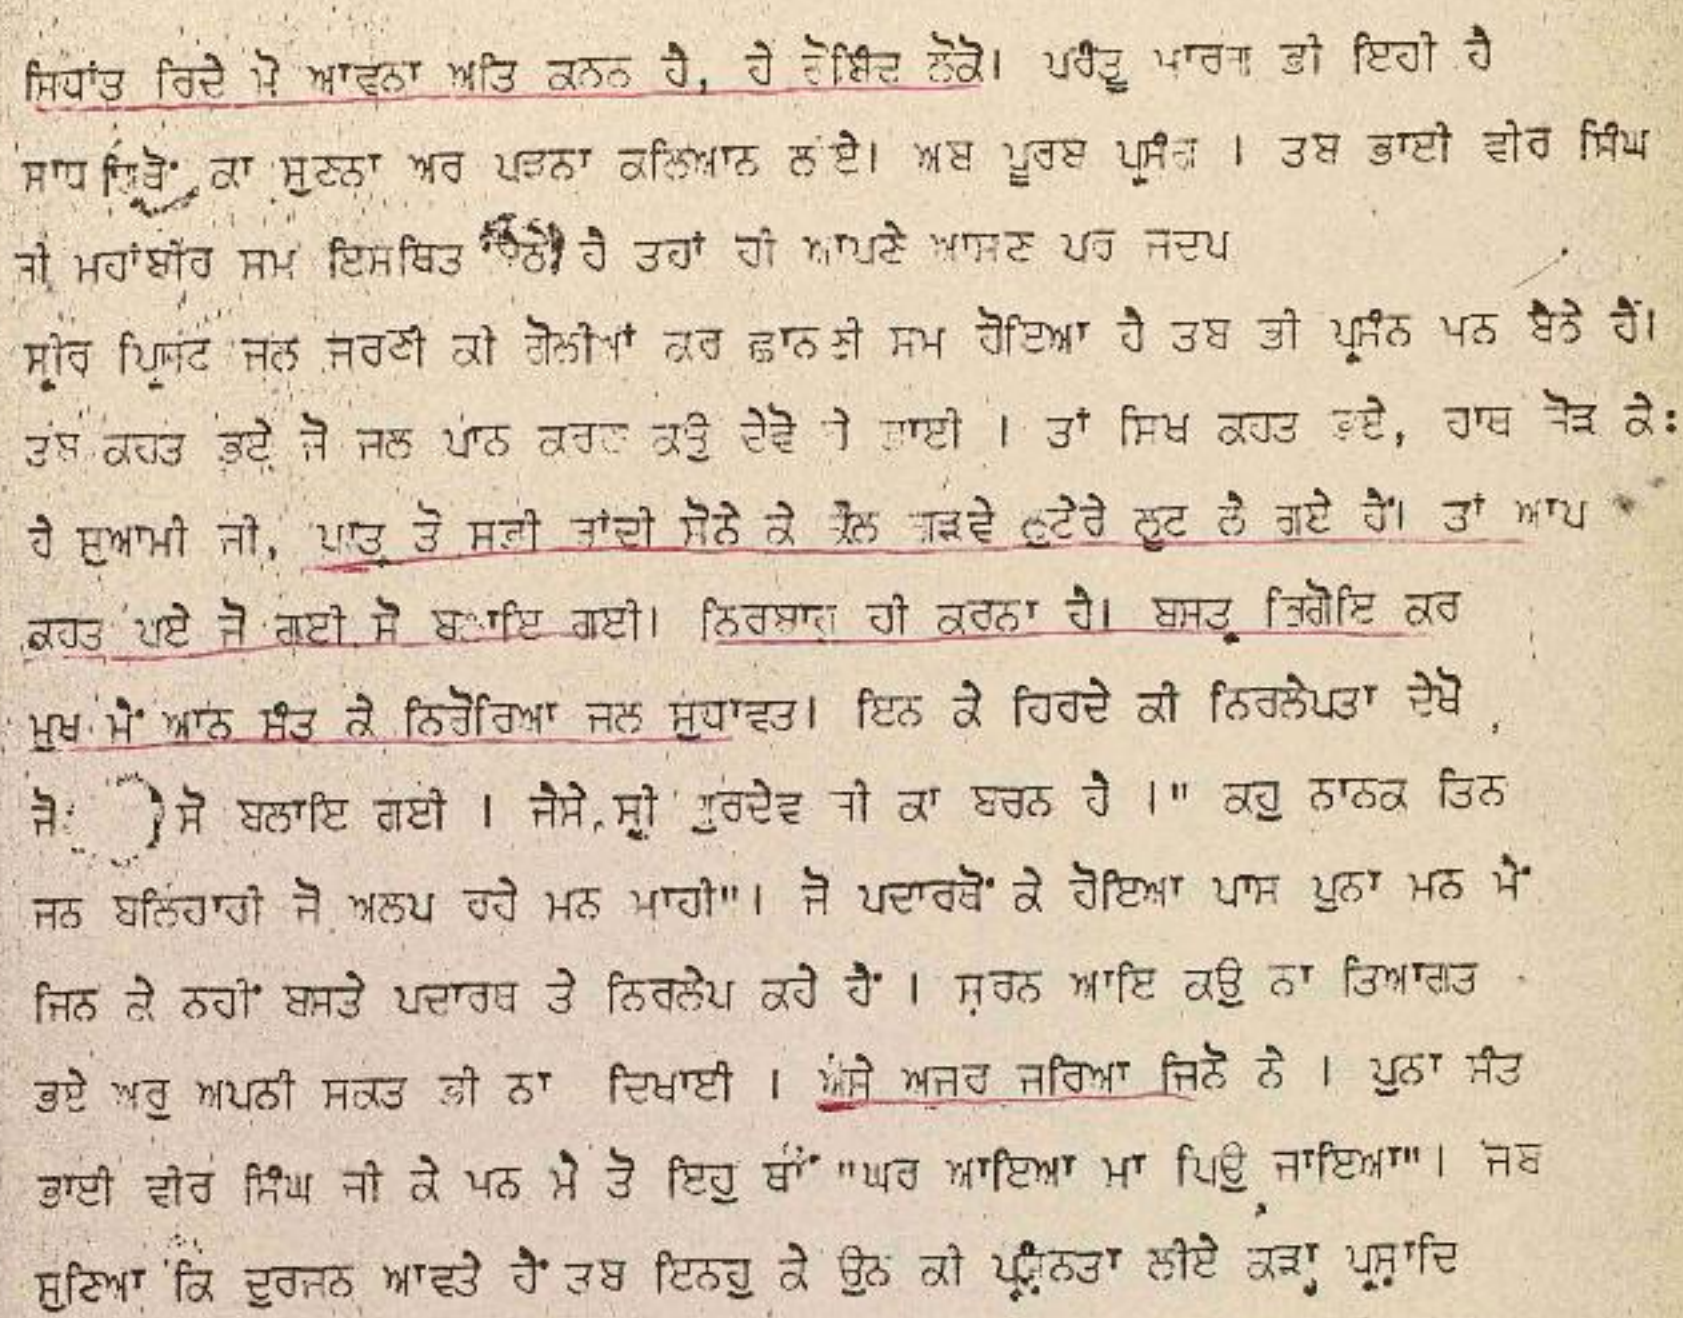 ਸਿਧਾਂਤ ਰਿਦੇ ਮੋ ਆਵਨਾ ਅਤਿ ਕਠਨ ਹੈ, ਹੇ ਗੋਬਿੰਦ ਲੋਕੋ। ਪਰੰਤੂ ਮਾਰਗ ਭੀ ਇਹੀ ਹੈ
ਸਾਧ ਕਾ ਸੁਣਨਾ ਅਰ ਪੜਨਾ ਕਲਿਆਨ ਲਏ। ਅਬ ਪੂਰਬ ਪ੍ਰਸੰਗ । ਤਬ ਭਾਈ ਵੀਰ ਸਿੰਘ
ਜੀ ਮਹਾਂਬੀਰ ਸਮ ਇਸਥਿਤ ਹੈ ਤਹਾਂ ਹੀ ਆਪਣੇ ਆਸਣ ਪਰ ਜਦਪ
ਸ੍ਰੀਰ ਜਲ ਜਰਣੀ ਕੀ ਗੋਲੀਆਂ ਕਰ ਛਾਨਣੀ ਸਮ ਹੋਇਆ ਹੈ ਤਬ ਭੀ ਪ੍ਰਸੰਨ ਮਨ ਬੈਠੇ ਹੈਂ।
ਤਬ ਕਹਤ ਭਏ ਜੋ ਜਲ ਪਾਨ ਕਰਣ ਕਉ ਦੇਵੋ ਜੇ ਭਾਈ । ਤਾਂ ਸਿਖ ਕਹਤ ਭਏ, ਹਾਥ ਜੋੜ ਕੇ:
ਹੇ ਸੁਆਮੀ ਜੀ, ਪਾਤ੍ਰ ਤੋ ਸਭੀ ਚਾਂਦੀ ਸੋਨੇ ਕੇ ਕੌਲ ਗੜਵੇ ਲੁਟੇਰੇ ਲੂਟ ਲੇ ਗਏ ਹੈਂ। ਤਾਂ ਆਪ
ਕਹਤ ਪਏ ਜੋ ਗਈ ਸੋ ਬਲਾਇ ਗਈ। ਨਿਰਬਾਹ ਹੀ ਕਰਨਾ ਹੈ। ਬਸਤ੍ਰ ਭਿਗੋਇ ਕਰ
ਮੁਖ ਮੇਂ ਆਨ ਸੰਤ ਕੇ ਨਿਚੋਰਿਆ ਜਲ ਸੁਧਾਵਤ। ਇਨ ਕੇ ਹਿਰਦੇ ਕੀ ਨਿਰਲੇਪਤਾ ਦੇਖੋ ,
ਜੋ ਸੋ ਬਲਾਇ ਗਈ । ਜੈਸੇ ਸ੍ਰੀ ਗੁਰਦੇਵ ਜੀ ਕਾ ਬਚਨ ਹੈ ।" ਕਹੁ ਨਾਨਕ ਤਿਨ
ਜਨ ਬਲਿਹਾਰੀ ਜੋ ਅਲਪ ਰਹੇ ਮਨ ਮਾਹੀ"। ਜੋ ਪਦਾਰਥੋਂ ਕੇ ਹੋਇਆ ਪਾਸ ਪੁਨਾ ਮਨ ਮੇਂ
ਜਿਨ ਕੇ ਨਹੀਂ ਬਸਤੇ ਪਦਾਰਥ ਤੇ ਨਿਰਲੇਪ ਕਹੇ ਹੈਂ । ਸ਼ਰਨ ਆਇ ਕਉ ਨਾ ਤਿਆਗਤ
ਭਏ ਅਰੁ ਅਪਨੀ ਸਕਤ ਭੀ ਨਾ ਦਿਖਾਈ । ਐਸੇ ਅਜਰ ਜਰਿਆ ਜਿਨੋ ਨੇ । ਪੁਨਾ ਸੰਤ
ਭਾਈ ਵੀਰ ਸਿੰਘ ਜੀ ਕੇ ਮਨ ਮੇ ਤੋ ਇਹੁ ਥਾਂ "ਘਰ ਆਇਆ ਮਾ ਪਿਉ ਜਾਇਆ"। ਜਬ
ਸੁਣਿਆ ਕਿ ਦੁਰਜਨ ਆਵਤੇ ਹੈਂ ਤਬ ਇਨਹੁ ਕੇ ਉਨ ਕੀ ਪ੍ਰਸੰਨਤਾ ਲੀਏ ਕੜਾ ਪ੍ਰਸ਼ਾਦਿ